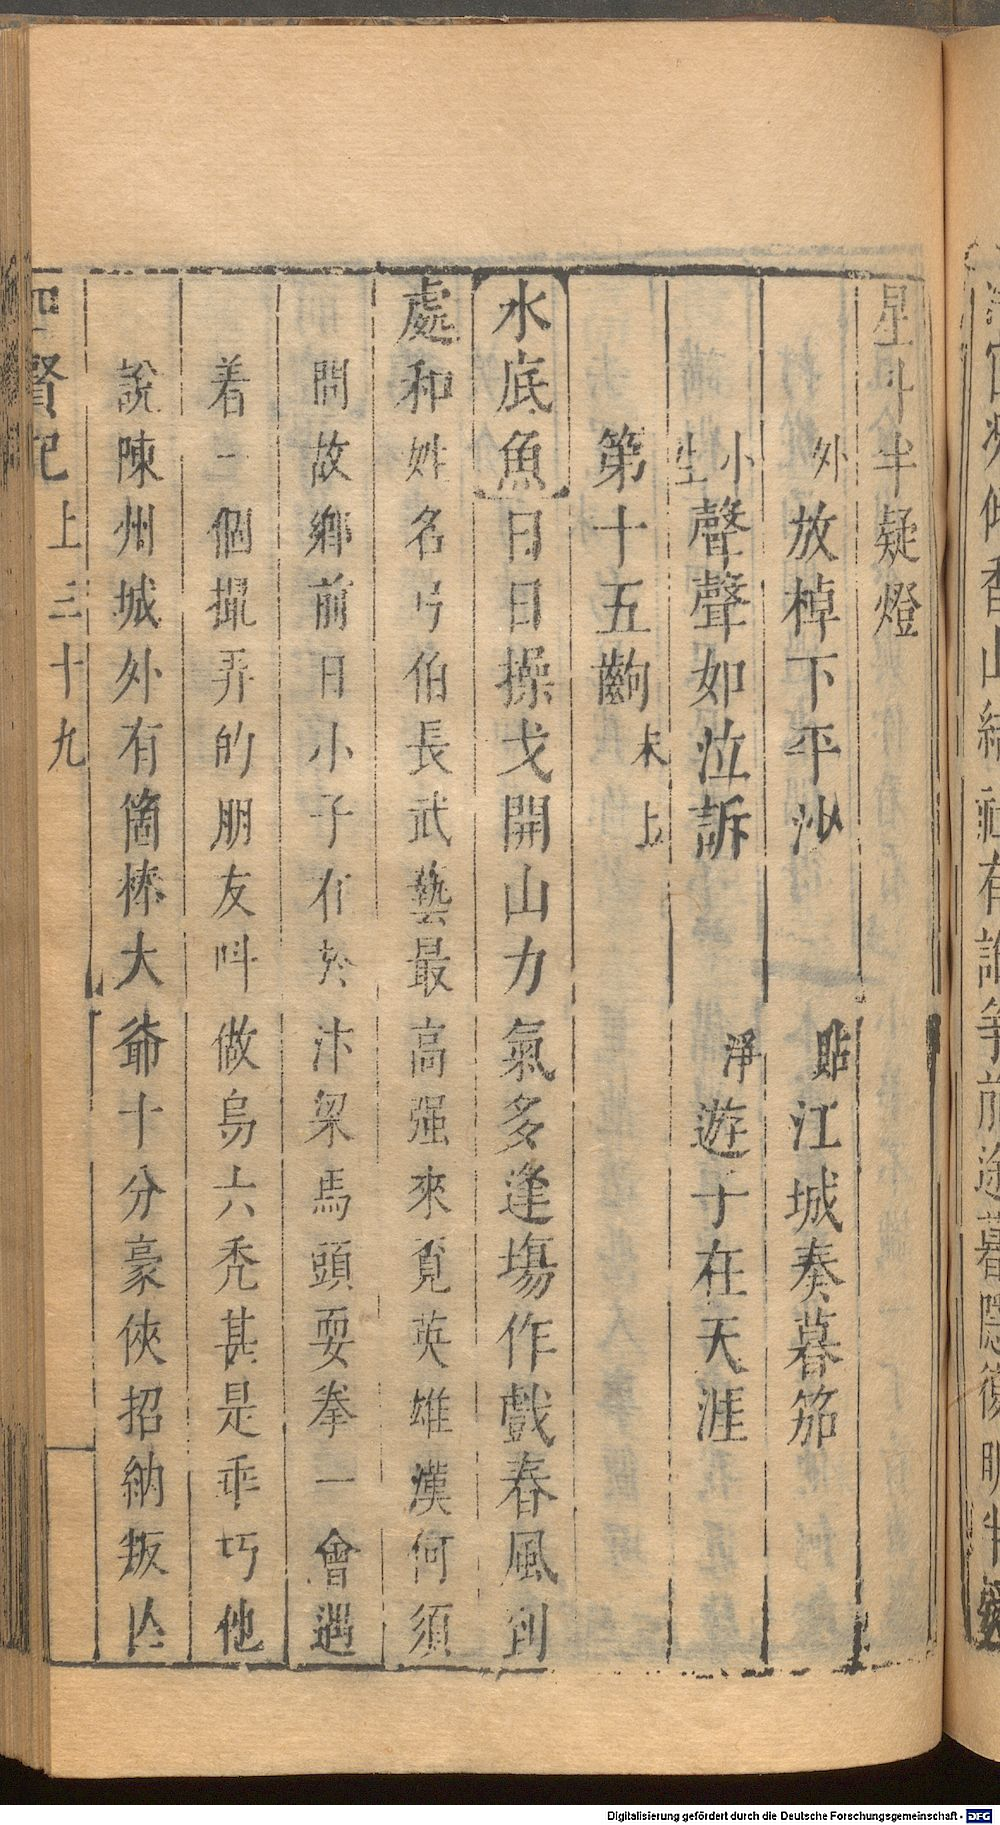 星斗半疑燈
外放棹下平沙 貼江城奏暮笳
小生聲聲如泣訴 淨遊子在天涯
第十五齣 末上
水底魚日日操戈開山力氣多逢塲作戲春風到
處和姓名弓伯長武藝最高强來覓英雄漢何須
問故鄉前日小子在於汴梁馬頭耍拳一會遇
着一個攛弄的朋友呌做烏六秃甚是乖巧他
說陳州城外有箇棒大爺十分豪俠招納叛亾
賢記 上 三十九
Digitalisierung gefördert durch die Deutsche Forschungsgemeinschaft - DFG